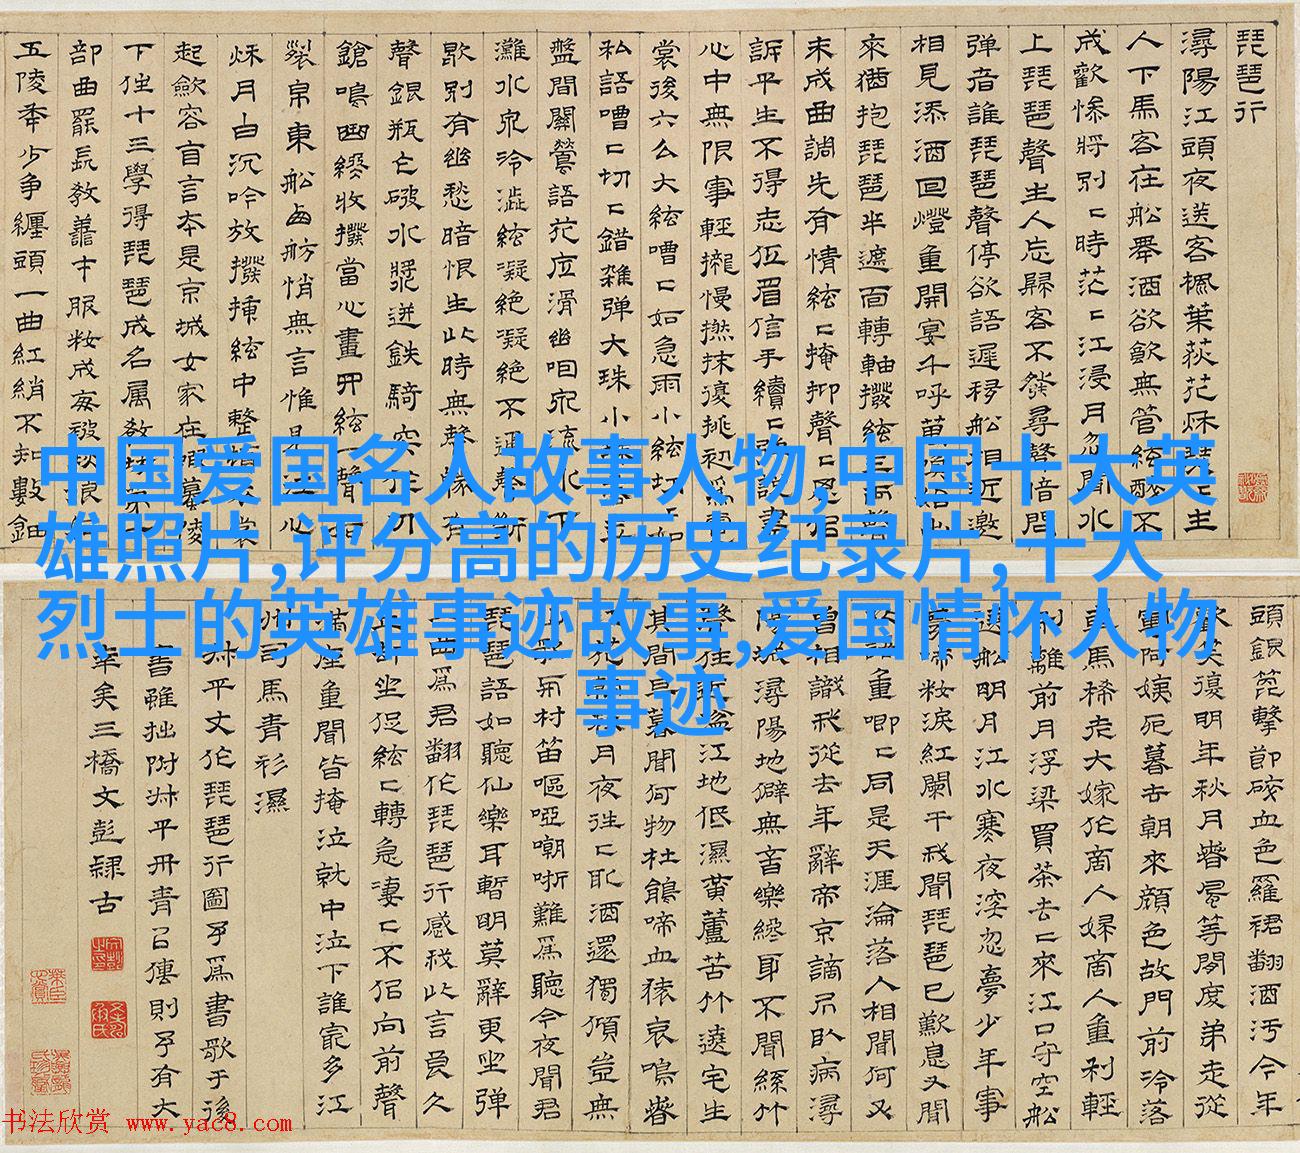 琵琶行
潯陽江頭夜送客楓葉荻花秋瑟二主
人下馬客在船舉酒欲飲無管絃醉不
成歡慘將別二時茫二江浸月忽聞水
上琵琶聲主人忘歸客不發尋聲暗問
彈者誰琵琶聲停欲語遲移船相近邀
相見添酒回燈重開宴千呼萬喚始出
來猶抱琵琶半遮面轉軸撥絃三兩聲
未成曲調先有情絃二掩抑聲二思似
訴平生不得志低眉信手續二彈說盡
心中無限事輕攏慢撚抹復挑初為霓
裳後六么大絃嘈二如急雨小絃切二如
私語嘈二切二錯雜弹大珠小珠落玉
盤間關鶯語花底滑幽咽泉流水下
灘水泉冷澁絃凝絕凝絕不通聲漸
歇別有幽愁暗恨生此時無聲勝有
聲銀瓶乍破水漿迸鐵騎突出刀
鎗鳴曲終收撥當心畫四絃一聲如
裂帛東船西舫悄無言惟見江心
秋月白沉吟放撥插絃中整頓衣裳
起斂容自言本是京城女家在蝦蟇陵
下住十三學得琵琶成名屬教坊第一
部曲罷長教善才服粧成每被秋娘妬
五陵年少争纏頭一曲紅綃不知數鈿
中国爱国名人故事人物,中国十大英
雄照片,评分高的历史纪录片,十大
烈士的英雄事迹故事,爱国情怀人物
事迹
頭銀篦擊節碎血色羅裙翻酒污今年
歡笑復明年秋月春風等閒度弟走從
軍阿姨死暮去朝來顏色故門前冷落
車馬稀老大嫁作商人婦商人重利輕
別離前月浮梁買茶去二來江口守空船
遶船明月江水寒夜深忽夢少年事
夢啼粧淚紅闌干我聞琵琶已歎息又聞
此語重唧二同是天涯淪落人相聞何必
曾相識我從去年辭帝京謫居卧病潯
陽城潯陽地僻無音樂終年不聞絲竹
聲住近湓江地低濕黃蘆苦竹遶宅生
其間旦暮聞何物杜鵑啼血猿哀鳴春
江花朝秋月夜往二取酒還獨傾豈無
山歌與村笛嘔啞嘲哳難為聽今夜聞君
琵琶語如聽仙樂耳暫明莫辭更坐彈
一曲為君翻作琵琶行感我此言良久
立卻坐促絃二轉急凄二不似向前聲
滿座重聞皆掩泣就中泣下誰最多江
州司馬青衫濕
休平丈作琵琶行圖予為書歌于後
書雖拙附休平丹青以傳則予有大
幸矣三橋文彭隸古
书法欣赏 www.yac8.com